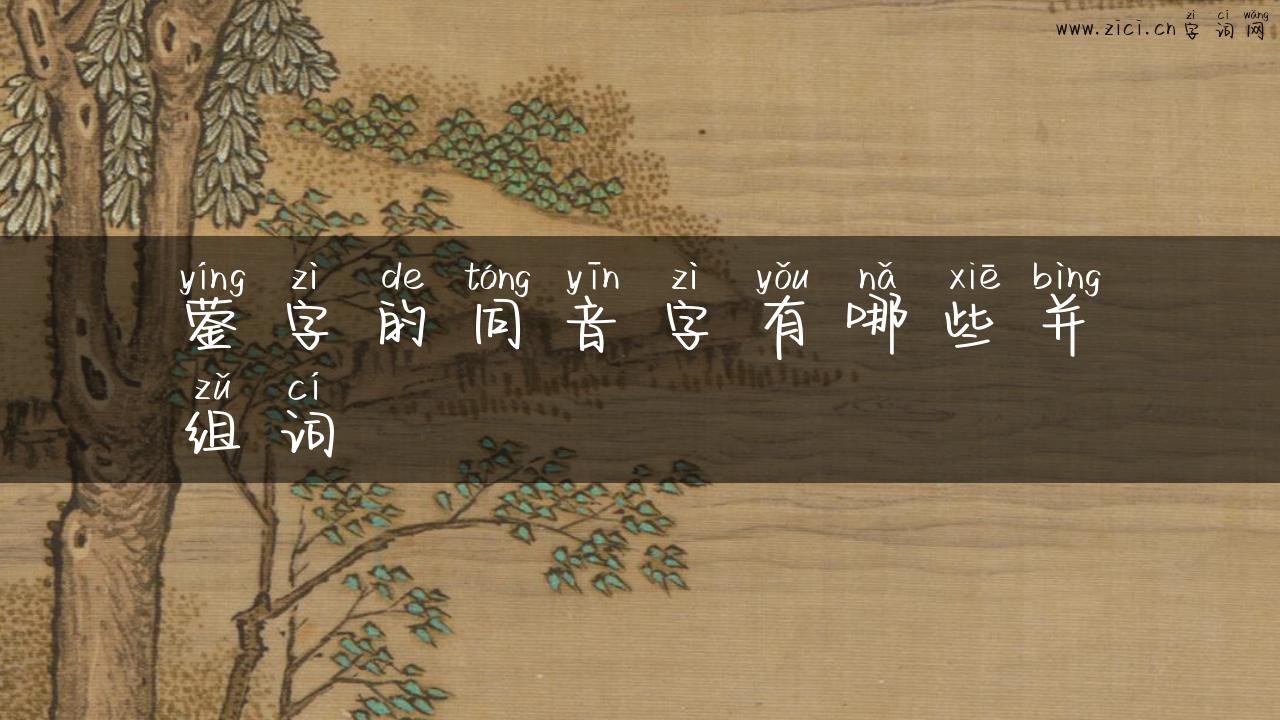 zì cí wǎng
www.zici.cn 字词网
yíng zì de tóng yīn zì yǒu nǎ xiē bìng
蓥字的同音字有哪些并
zǔ cí
组词